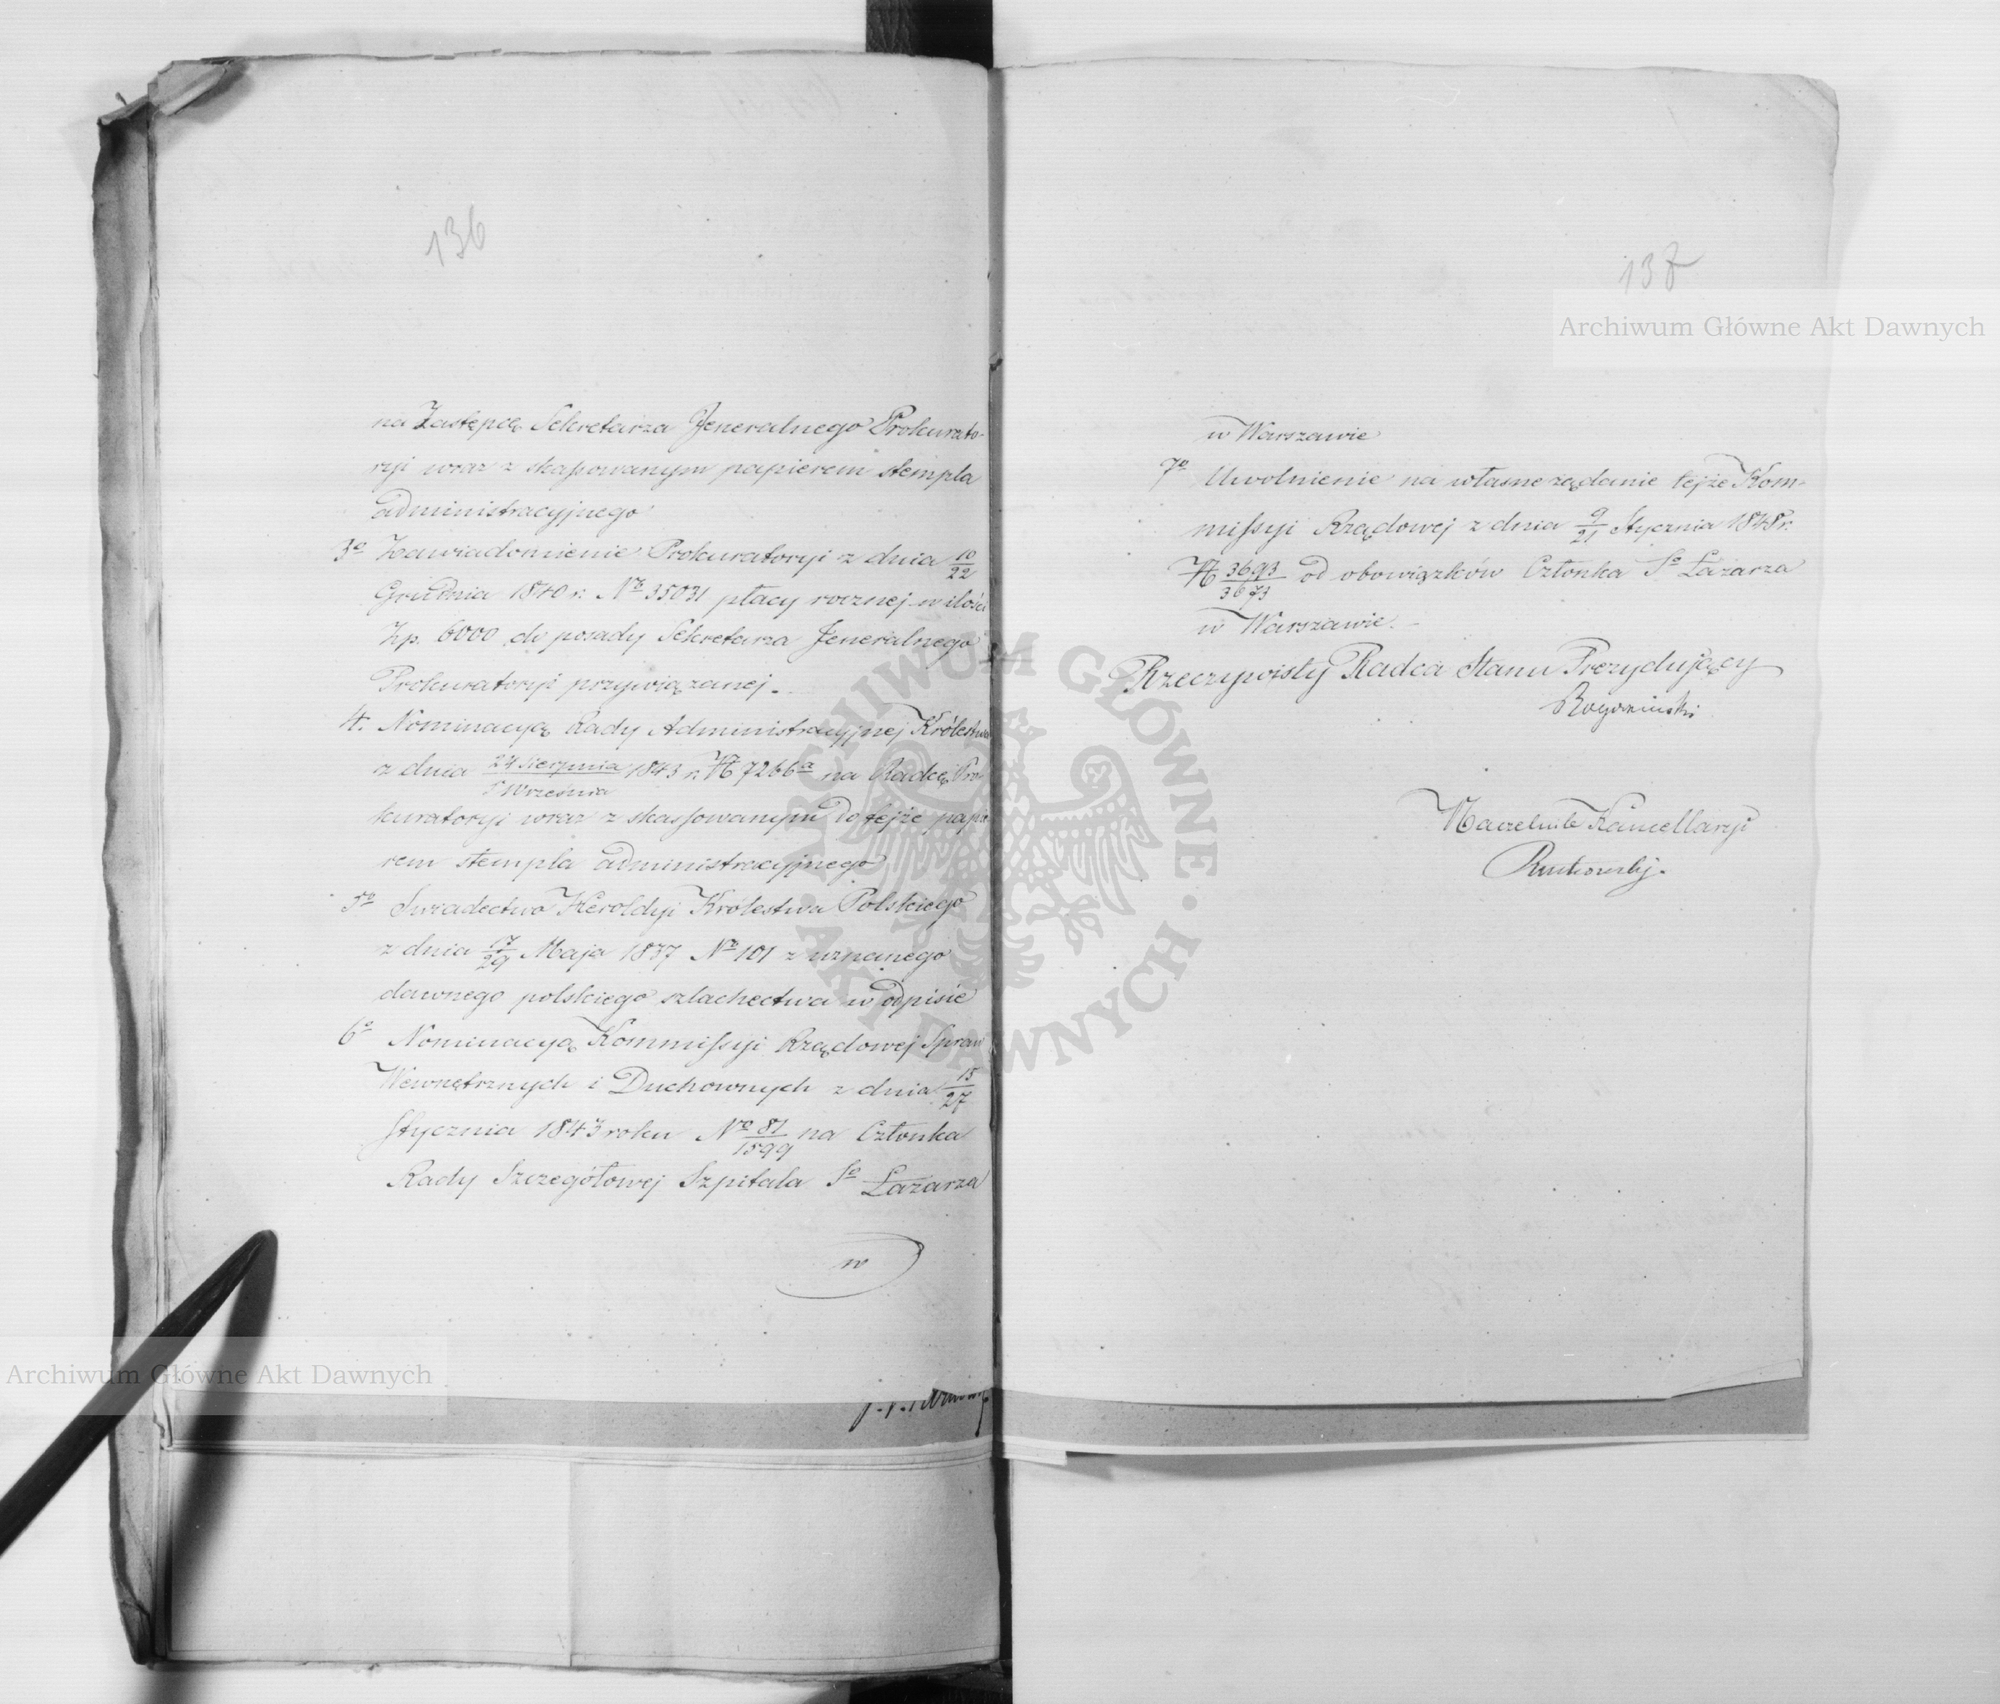 136
na Zastępcę Sekretarza Jeneralnego Prokurato-
ryi wraz z skassowanym papierem stempla
administracyjnego
3o Zawiadomienie Prokuratoryi z dnia 10/22
Grudnia 1840 r. No 35031 płacy rocznej w ilości
Zp. 6000 do posady Sekretarza Jeneralnego
Prokuratoryi przywiązanej.
4. Nominacyą Rady Administracyjnej Królestwa
z dnia 24 Sierpnia/5 Września 1843 r. N 7266a na Radcę Pro-
kuratoryi wraz z skassowanym do tejże papie
rem stempla administracyjnego
5o Świadectwo Heroldyi Królestwa Polskiego
z dnia 17/29 Maja 1837 No 101 z uznanego
dawnego polskiego szlachectwa w odpisie
6o Nominacyą Kommissyi Rządowej Spraw
Wewnętrznych i Duchownych z dnia 15/27
Stycznia 1843 roku No 81/1599 na Członka
Rady Szczegółowej Szpitala So Łazarza
w
137
w Warszawie
7o Uwolnienie na własne żądanie tejże Kom-
missyi Rządowej z dnia 9/21 Stycznia 1848 r.
N 3693/3673 od obowiązków Członka So Łazarza
w Warszawie.
Rzeczywisty Radca Stanu Prezydujący
Rogoziński
Naczelnik Kancellaryi
Rutkowski.
Archiwum Główne Akt Dawnych
Archiwum Główne Akt Dawnych
ARCHIWUM GŁÓWNE · AKT DAWNYCH ·